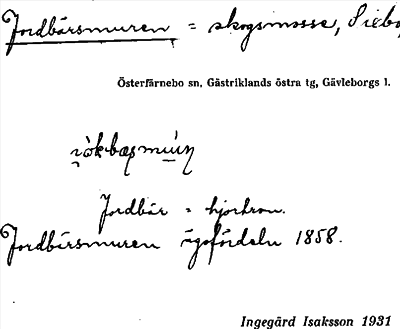 Jordbärsmuren = skogsmosse, Siebo
Österfärnebo sn, Gästriklands östra tg, Gävleborgs l.
Jordbär = hjortron.
Jordbärsmuren ägofördeln 1858.
Ingegärd Isaksson 1931